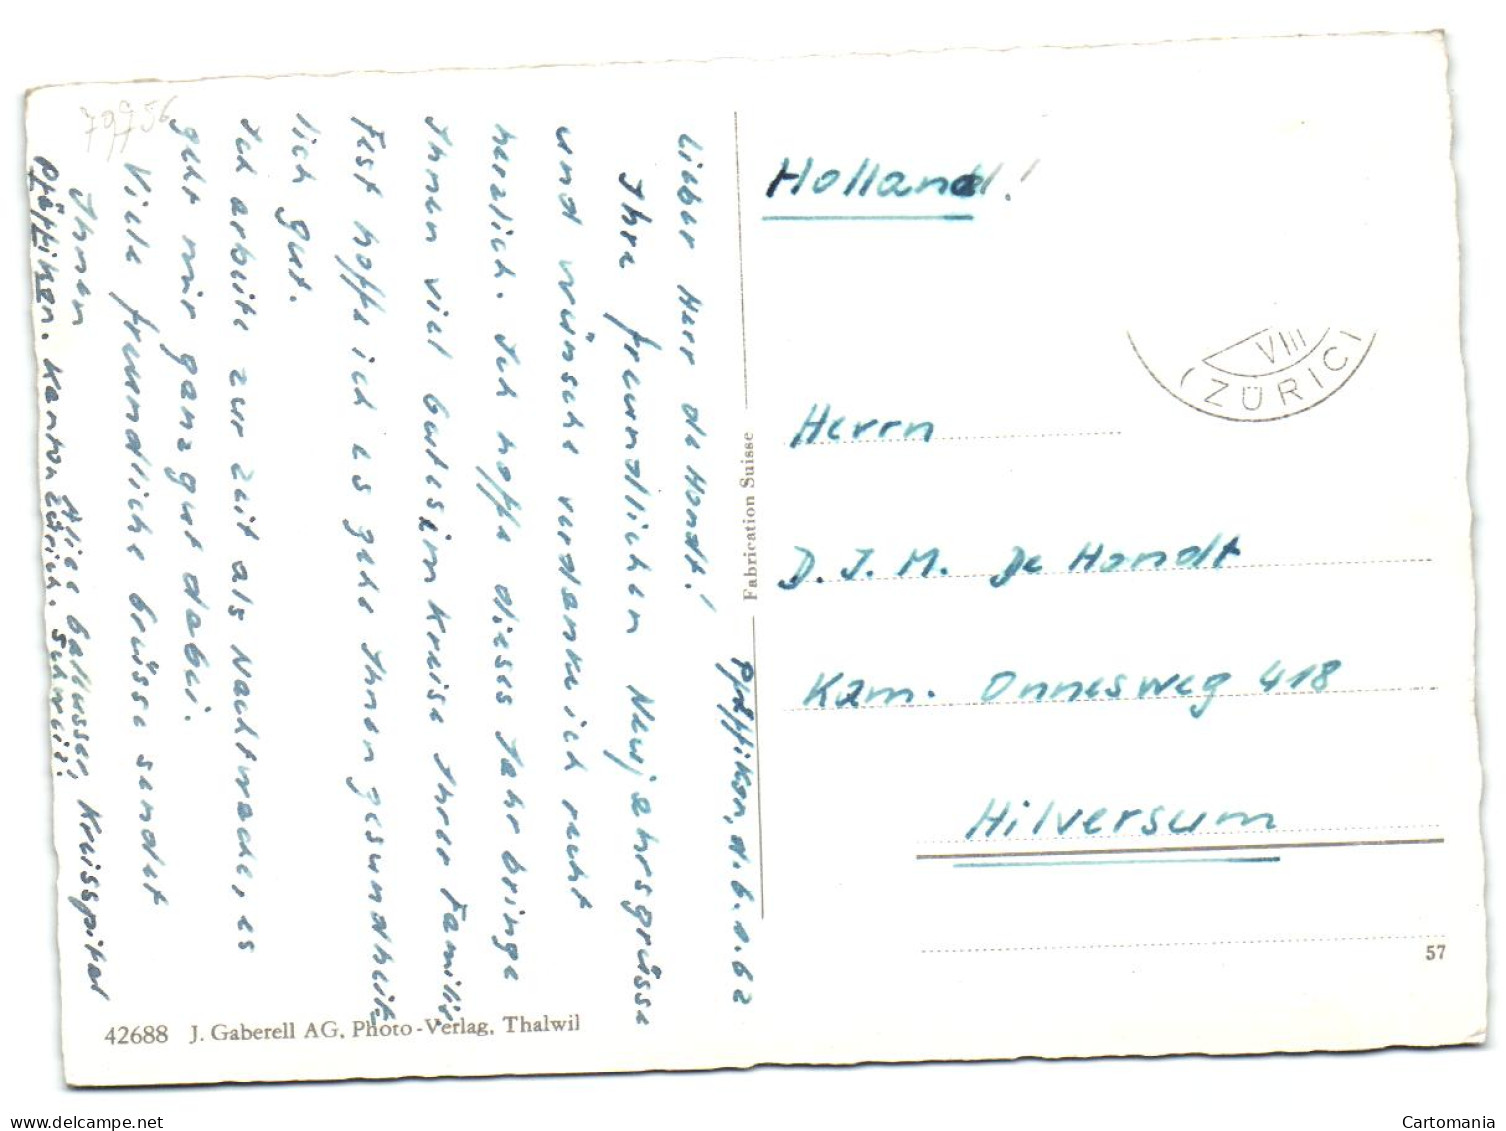 Pfäffikon, d. 6.1.62
Lieber Herr de Hondt!
Ihre freundlichen Neujahrsgrüsse
und wünsche verdanke ich recht
herzlich. Ich hoffe dieses Jahr bringe
Ihnen viel Gutes im Kreise Ihrer Familie.
Fest hoffe ich es gehe Ihnen gesundheit-
lich gut.
Ich arbeite zur Zeit als Nachtwache, es
geht mir ganz gut dabei.
Viele freundliche Grüsse sendet
Ihnen
Alice Gallusser, Kreisspital
Pfäffikon. Kanton Zürich. Schweiz.
Holland!
VIII
(ZÜRICH
Herrn
D. J. M. De Hondt
Kam. Onnesweg 418
Hilversum
57
Fabrication Suisse
42688 J. Gaberell AG, Photo-Verlag, Thalwil
www.delcampe.net
Cartomania